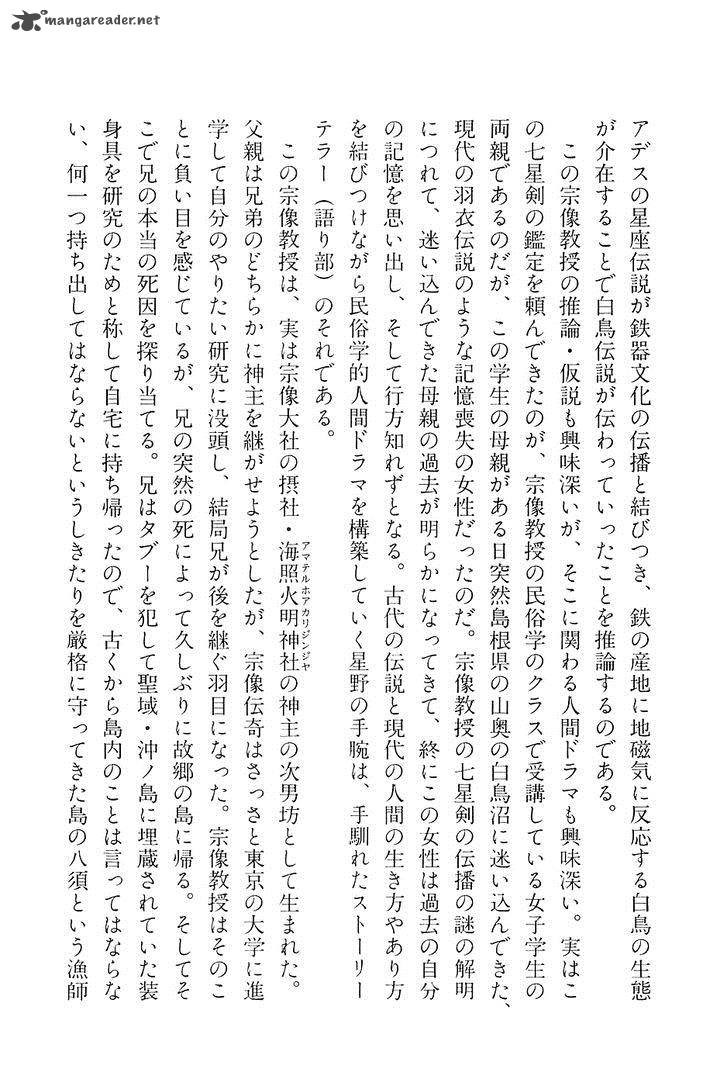 mangareader.net
アデスの星座伝説が鉄器文化の伝播と結びつき、鉄の産地に地磁気に反応する白鳥の生態
が介在することで白鳥伝説が伝わっていったことを推論するのである。
この宗像教授の推論・仮説も興味深いが、そこに関わる人間ドラマも興味深い。実はこ
の七星剣の鑑定を頼んできたのが、宗像教授の民俗学のクラスで受講している女子学生の
両親であるのだが、この学生の母親がある日突然島根県の山奥の白鳥沼に迷い込んできた、
現代の羽衣伝説のような記憶喪失の女性だったのだ。宗像教授の七星剣の伝播の謎の解明
につれて、迷い込んできた母親の過去が明らかになってきて、終にこの女性は過去の自分
の記憶を思い出し、そして行方知れずとなる。古代の伝説と現代の人間の生き方やあり方
を結びつけながら民俗学的人間ドラマを構築していく星野の手腕は、手馴れたストーリー
テラー（語り部）のそれである。
この宗像教授は、実は宗像大社の摂社・海照火明神社の神主の次男坊として生まれた。
アマテルホアカリジンジヤ
父親は兄弟のどちらかに神主を継がせようとしたが、宗像伝奇はさっさと東京の大学に進
学して自分のやりたい研究に没頭し、結局兄が後を継ぐ羽目になった。宗像教授はそのこ
とに負い目を感じているが、兄の突然の死によって久しぶりに故郷の島に帰る。そしてそ
こで兄の本当の死因を探り当てる。兄はタブーを犯して聖域・沖ノ島に埋蔵されていた装
身具を研究のためと称して自宅に持ち帰ったので、古くから島内のことは言ってはならな
い、何一つ持ち出してはならないというしきたりを厳格に守ってきた島の八須という漁師